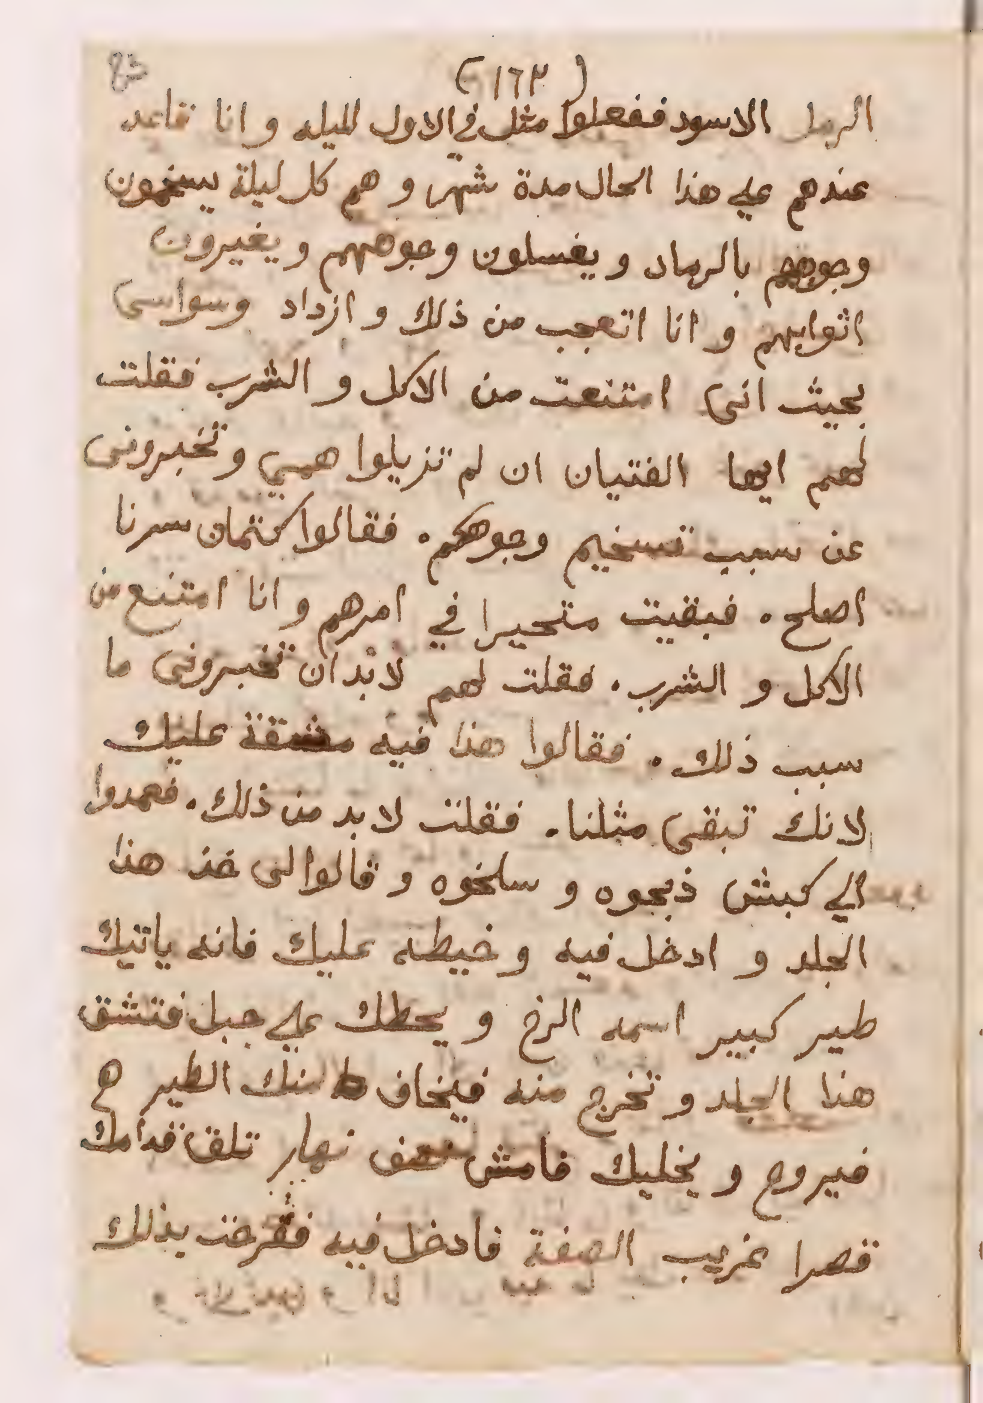 (١٦٣)
الرمل الاسود ففعلوا مثل في الاول لليله و انا قاعد
عندهم علي هذا الحال مدة شهر و هم كل ليلة يسخمون
وجوههم بالرماد و يغسلون وجوههم و يغيرون
اثوابهم و انا اتعجب من ذلك و ازداد وسواسي
بحيث انى امتنعت من الاكل و الشرب فقلت
لهم ايها الفتيان ان لم تزيلوا همي و تخبرونى
عن سبب تسخيم وجوهكم. فقالوا كتمان سرنا
اصلح. فبقيت متحيرا في امرهم و انا امتنع من
الاكل و الشرب. فقلت لهم لابد ان تخبرونى ما
سبب ذلك. فقالوا هذا فيه مشقة عليك
لانك تبقى مثلنا. فقلت لابد من ذلك. فعمدوا
الي كبش ذبحوه و سلخوه و قالوا لى خذ هذا
الجلد و ادخل فيه و خيطه عليك فانه ياتيك
طير كبير اسمه الرخ و يحطك علي جبل فتشق
هذا الجلد و تخرج منه فيخاف منك الطير
فيروح و يخليك فامش نصف نهار تلق قدامك
قصرا غريب الصفة فادخل فيه فقد بذلك